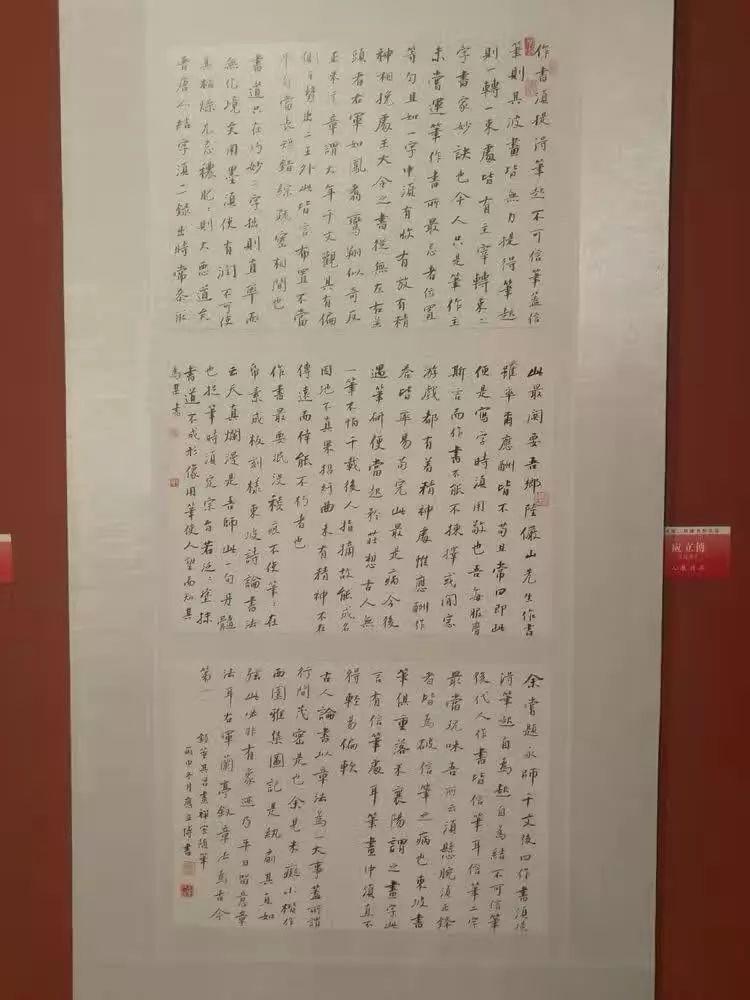 作書須提得筆起不可信筆蓋信
筆則其波畫皆無力提得筆起
則一轉一束處皆有主宰轉束二
字書家妙訣也今人只是筆作主
未嘗運筆作書所最忌者位置
等勻且如一字中須有收有放有精
神相挽處王大令之書從無左右並
頭者右軍如鳳翥鸞翔似奇反
正米元章謂大年千文觀其有偏
側之勢出二王外此皆言布置不當
平勻當長短錯綜疏密相間也
書道只在巧妙二字拙則直率而
無化境矣用墨須使有潤不可使
其枯燥尤忌穠肥肥則大惡道矣
晉唐人結字須一一錄出時常參取
此最關要吾鄉陸儼山先生作書
雖率爾應酬皆不苟且常曰即此
便是寫字時須用敬也吾每服膺
斯言而作書不能不揀擇或閒窓
游戲都有着精神處惟應酬作
答皆率易苟完此最是病今後
遇筆研便當起矜莊想古人無
一筆不怕千載後人指摘故能成名
因地不真果招紆曲未有精神不在
傳遠而倖能不朽者也
作書最要泯沒稜痕不使筆筆在
帋素成板刻樣東坡詩論書法
云天真爛漫是吾師此一句丹髓
也捉筆時須定宗旨若泛泛塗抹
書道不成形像用筆使人望而知其
為某書
余嘗題永師千文後曰作書須提
得筆起自為起自為結不可信筆
後代人作書皆信筆耳信筆二字
最當玩味吾所云須懸腕須正鋒
者皆為破信筆之病也東坡書
筆俱重落米襄陽謂之畫字此
言有信筆處耳筆畫中須直不
得輕易偏軟
古人論書以章法為一大事蓋所謂
行間茂密是也余見米癡小楷作
西園雅集圖記是紈扇其直如
弦此必非有象迹乃平日留意章
法耳右軍蘭亭敘章法為古今
第一
錄董其昌畫禪室隨筆
丙申冬月應立博書
應立博